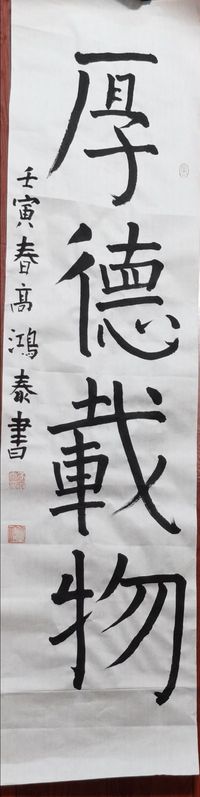 厚德載物
壬寅春高鴻泰書